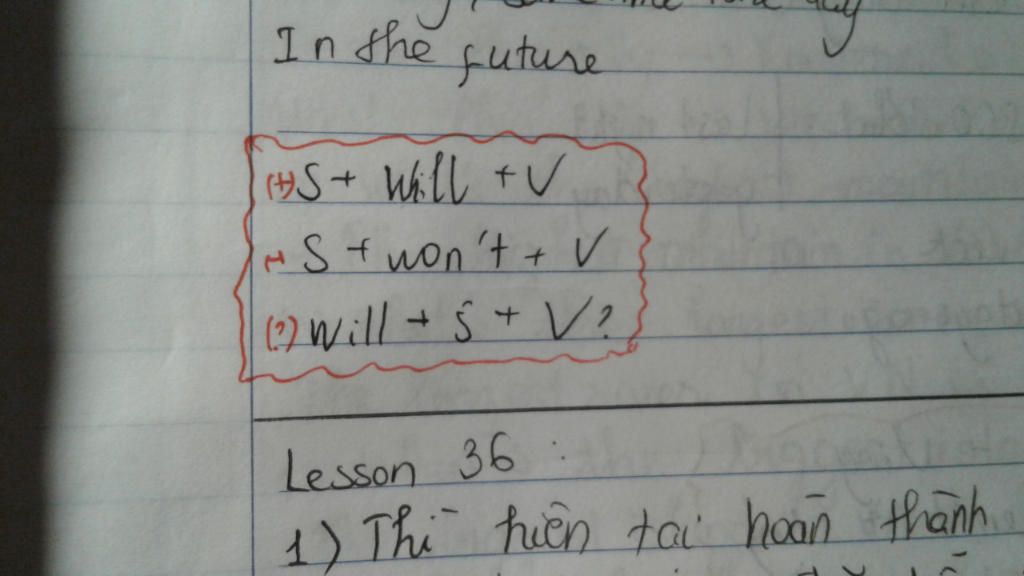 day
In the future
(+) S + Will + V
(-) S + won't + V
(?) Will + S + V?
Lesson 36 :
1) Thì hiện tại hoàn thành